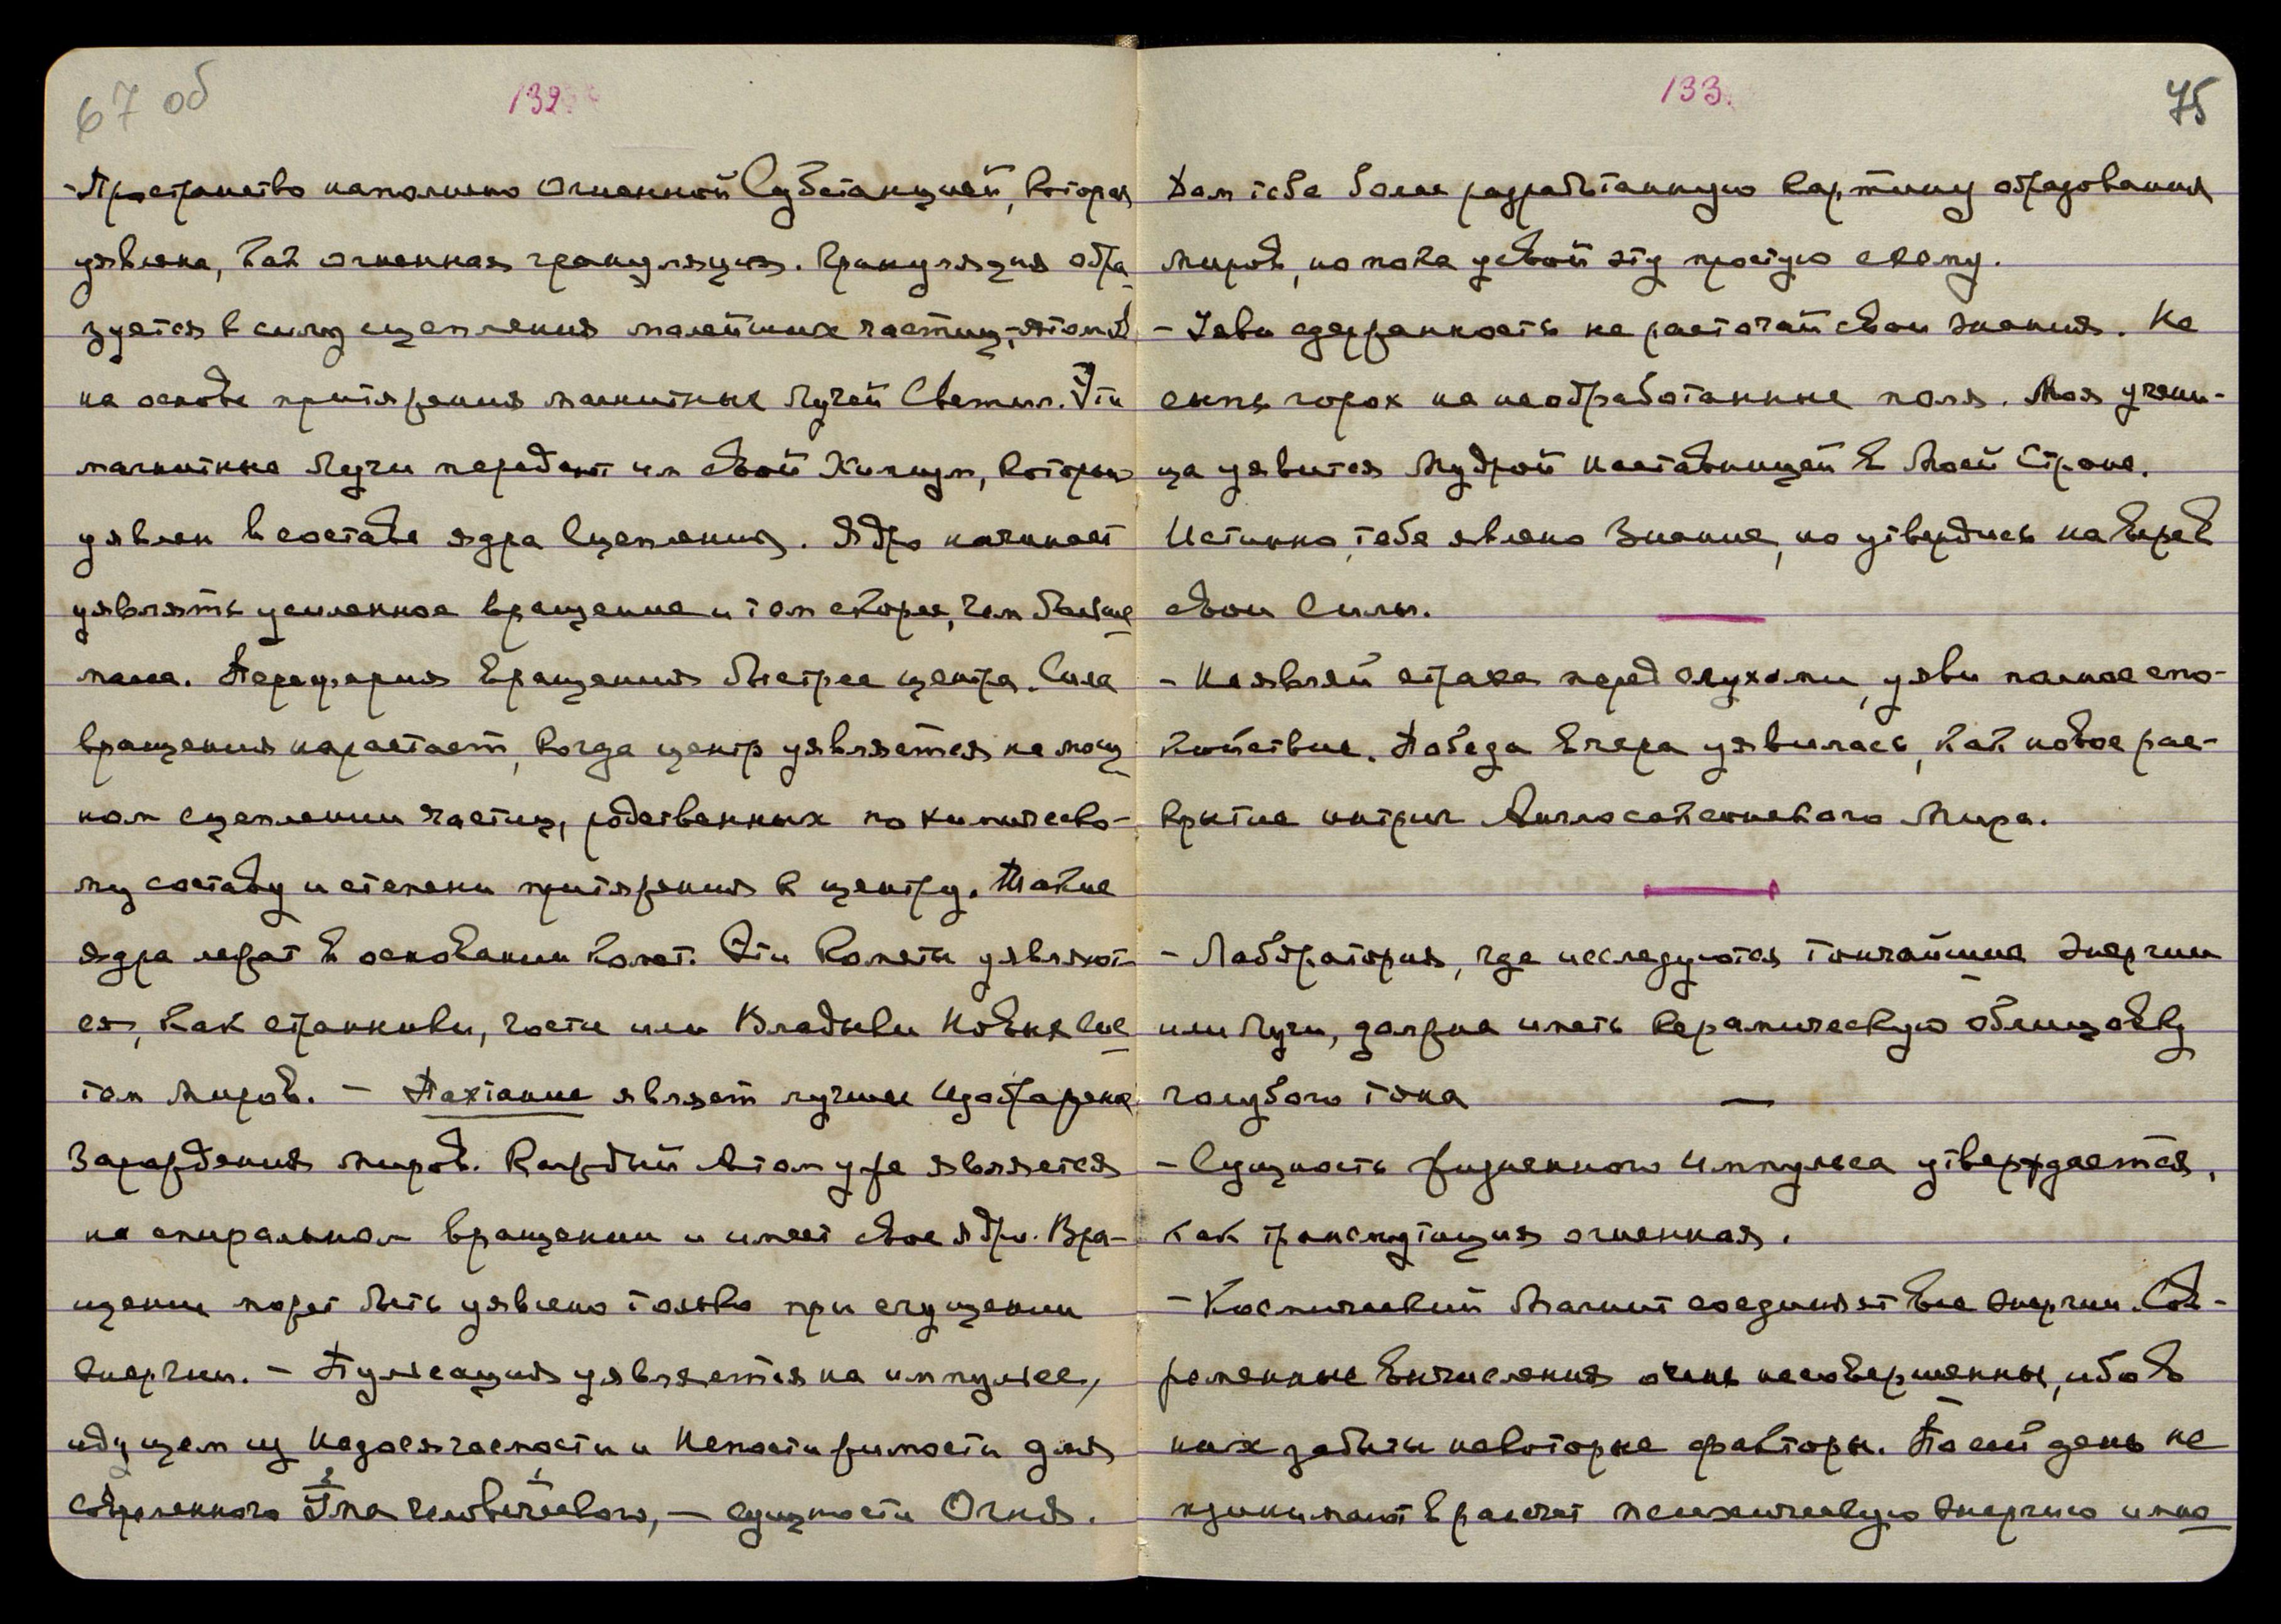 67 об
132
- Пространство наполнено Огненной Субстанцией, которая
уявлена, как огненная грануляция. Грануляция обра-
зуется в силу сцепления малейших частиц, - атомов
на основе притяжения магнитных Лучей Светил. Эти
магнитные Лучи передают им свой Химизм, который
уявлен в составе ядра Сцепления. Ядро начинает
уявлять усиленное вращение и тем скорее, чем больше
масса. Переферия вращения быстрее центра. Сила
вращения нарастает, когда центр уявляется на мощ-
ном сцеплении частиц, родственных по химическо-
му составу и степени притяжения к центру. Такие
ядра лежат в основании комет. Эти Кометы уявляют-
ся, как странники, гости или Владыки Новых Сис-
тем Миров. - Пахтание являет лучшее Изображение
Зарождения миров. Каждый Атом уже является
на спиральном вращении и имеет свое ядро. Вра-
щение может быть уявлено только при сгущении
энергии. - Пульсация уявляется на импульсе,
идущем из Недосягаемости и Непостижимости для
современного Ума человеческого, - сущности Огня.
133.
75
Дам тебе более разработанную картину образования
миров, но пока усвой эту простую схему.
- Яви сдержанность не расточай свои знания. Не
сыпь горох на необработанные поля. Моя учени-
ца уявится Мудрой наставницей в Моей Стране.
Истинно, тебе явлено Знание, но утвердись на вере в
свои Силы.
- Не являй страха перед слухами, уяви полное спо-
койствие. Победа вчера уявилась, как новое рас-
крытие интриг Англосаксонского Мира.
- Лаборатория, где исследуются тончайшие энергии
или Лучи, должна иметь керамическую облицовку
голубого тона
- Сущность жизненного Импульса утверждается,
как трансмутация огненная.
- Космический Магнит соединяет все энергии. Сов-
ременные вычисления очень несовершенны, ибо в
них забыты некоторые факторы. По сей день не
принимают в рассчет психическую энергию и мно-